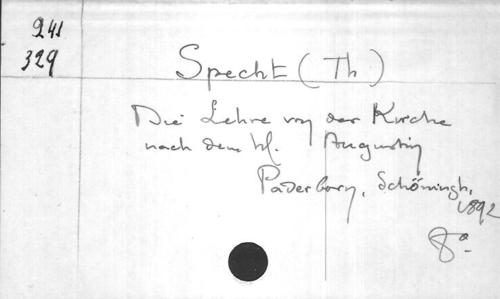 241
329
Specht (Th)
Die Lehre von der Kirche
nach dem hl. Augustin
Paderborn, Schöningh,
1892
8º